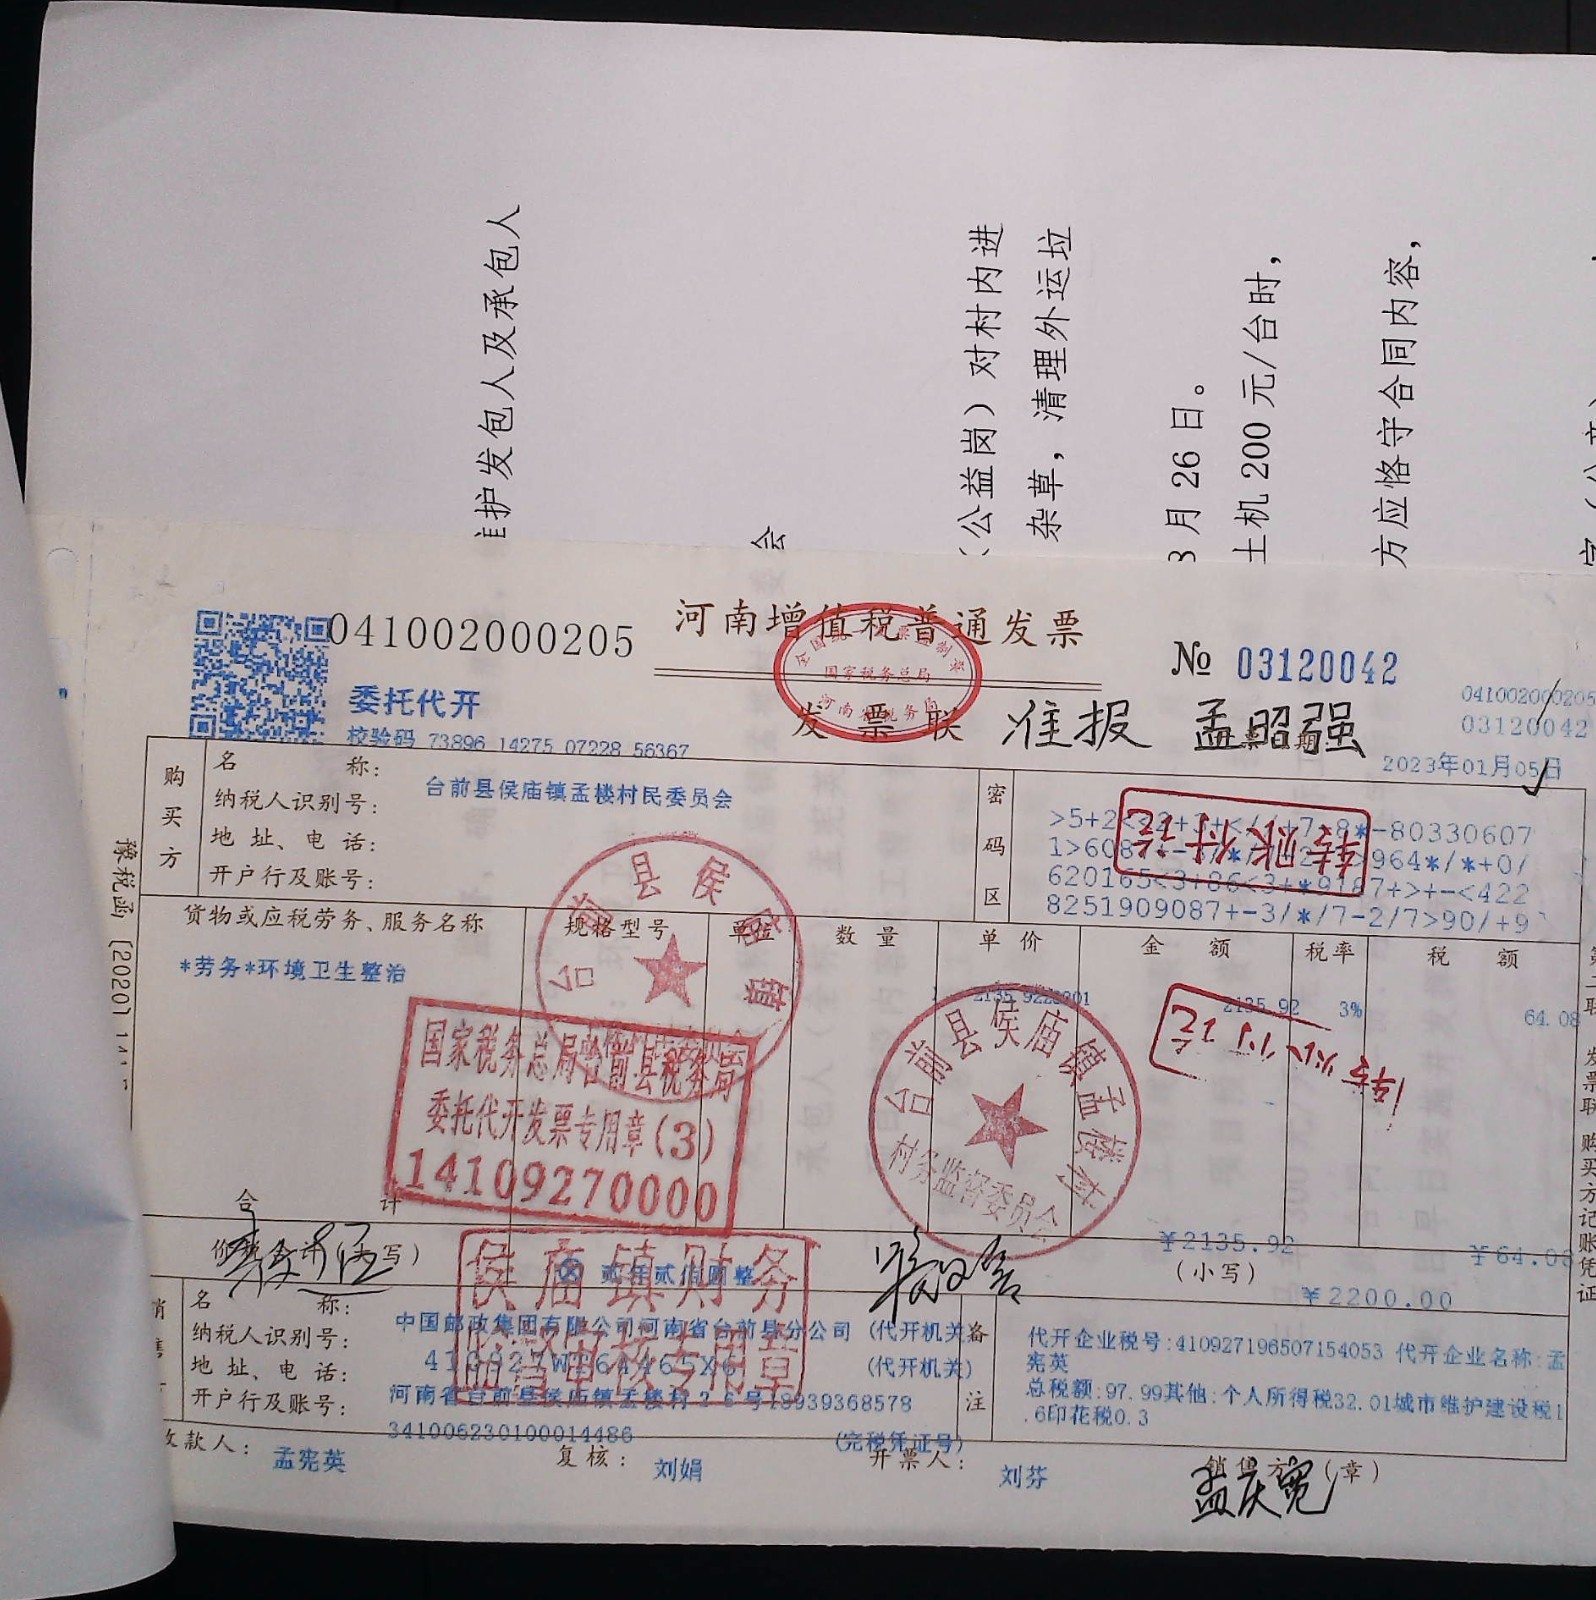 护发包人及承包人
会
（公益岗）对村内进
杂草，清理外运垃
月 26 日。
土机 200 元/台时，
方应恪守合同内容，
041002000205
河南增值税普通发票
№ 03120042
041002000205
03120042
委托代开
校验码 73896 14275 07228 56367
全国统一发票监制章
国家税务总局
河南省税务局
发票联
准报 孟昭强
期
2023年01月05日
购买方
名称：
台前县侯庙镇孟楼村民委员会
纳税人识别号：
地址、电话：
开户行及账号：
密码区
620165<3+86<3+*9187+>+-<422
8251909087+-3/*/7-2/7>90/+9
转账付讫
豫税函〔2020〕
货物或应税劳务、服务名称
规格型号
单位
数量
单价
金额
税率
税额
*劳务*环境卫生整治
1
2135.92
3%
64.08
台前县侯庙镇
台前县侯庙镇孟楼村
村务监督委员会
转账付讫
国家税务总局台前县税务局
委托代开发票专用章(3)
14109270000
合计
￥2135.92
￥64.08
价税合计（大写）
贰仟贰佰圆整
（小写）
￥2200.00
侯庙镇财务
专用章
名称：
中国邮政集团有限公司河南省台前县分公司 (代开机关)
纳税人识别号：
(代开机关)
地址、电话：
河南省台前县侯庙镇孟楼村26号18939368578
开户行及账号：
341006230100014486
(完税凭证号)
备注
代开企业税号:410927196507154053 代开企业名称:孟
宪英
总税额:97.99其他:个人所得税32.01城市维护建设税1
.6印花税0.3
收款人：
孟宪英
复核：
刘娟
开票人：
刘芬
销售方（章）
孟庆宽
发票联 购买方记账凭证